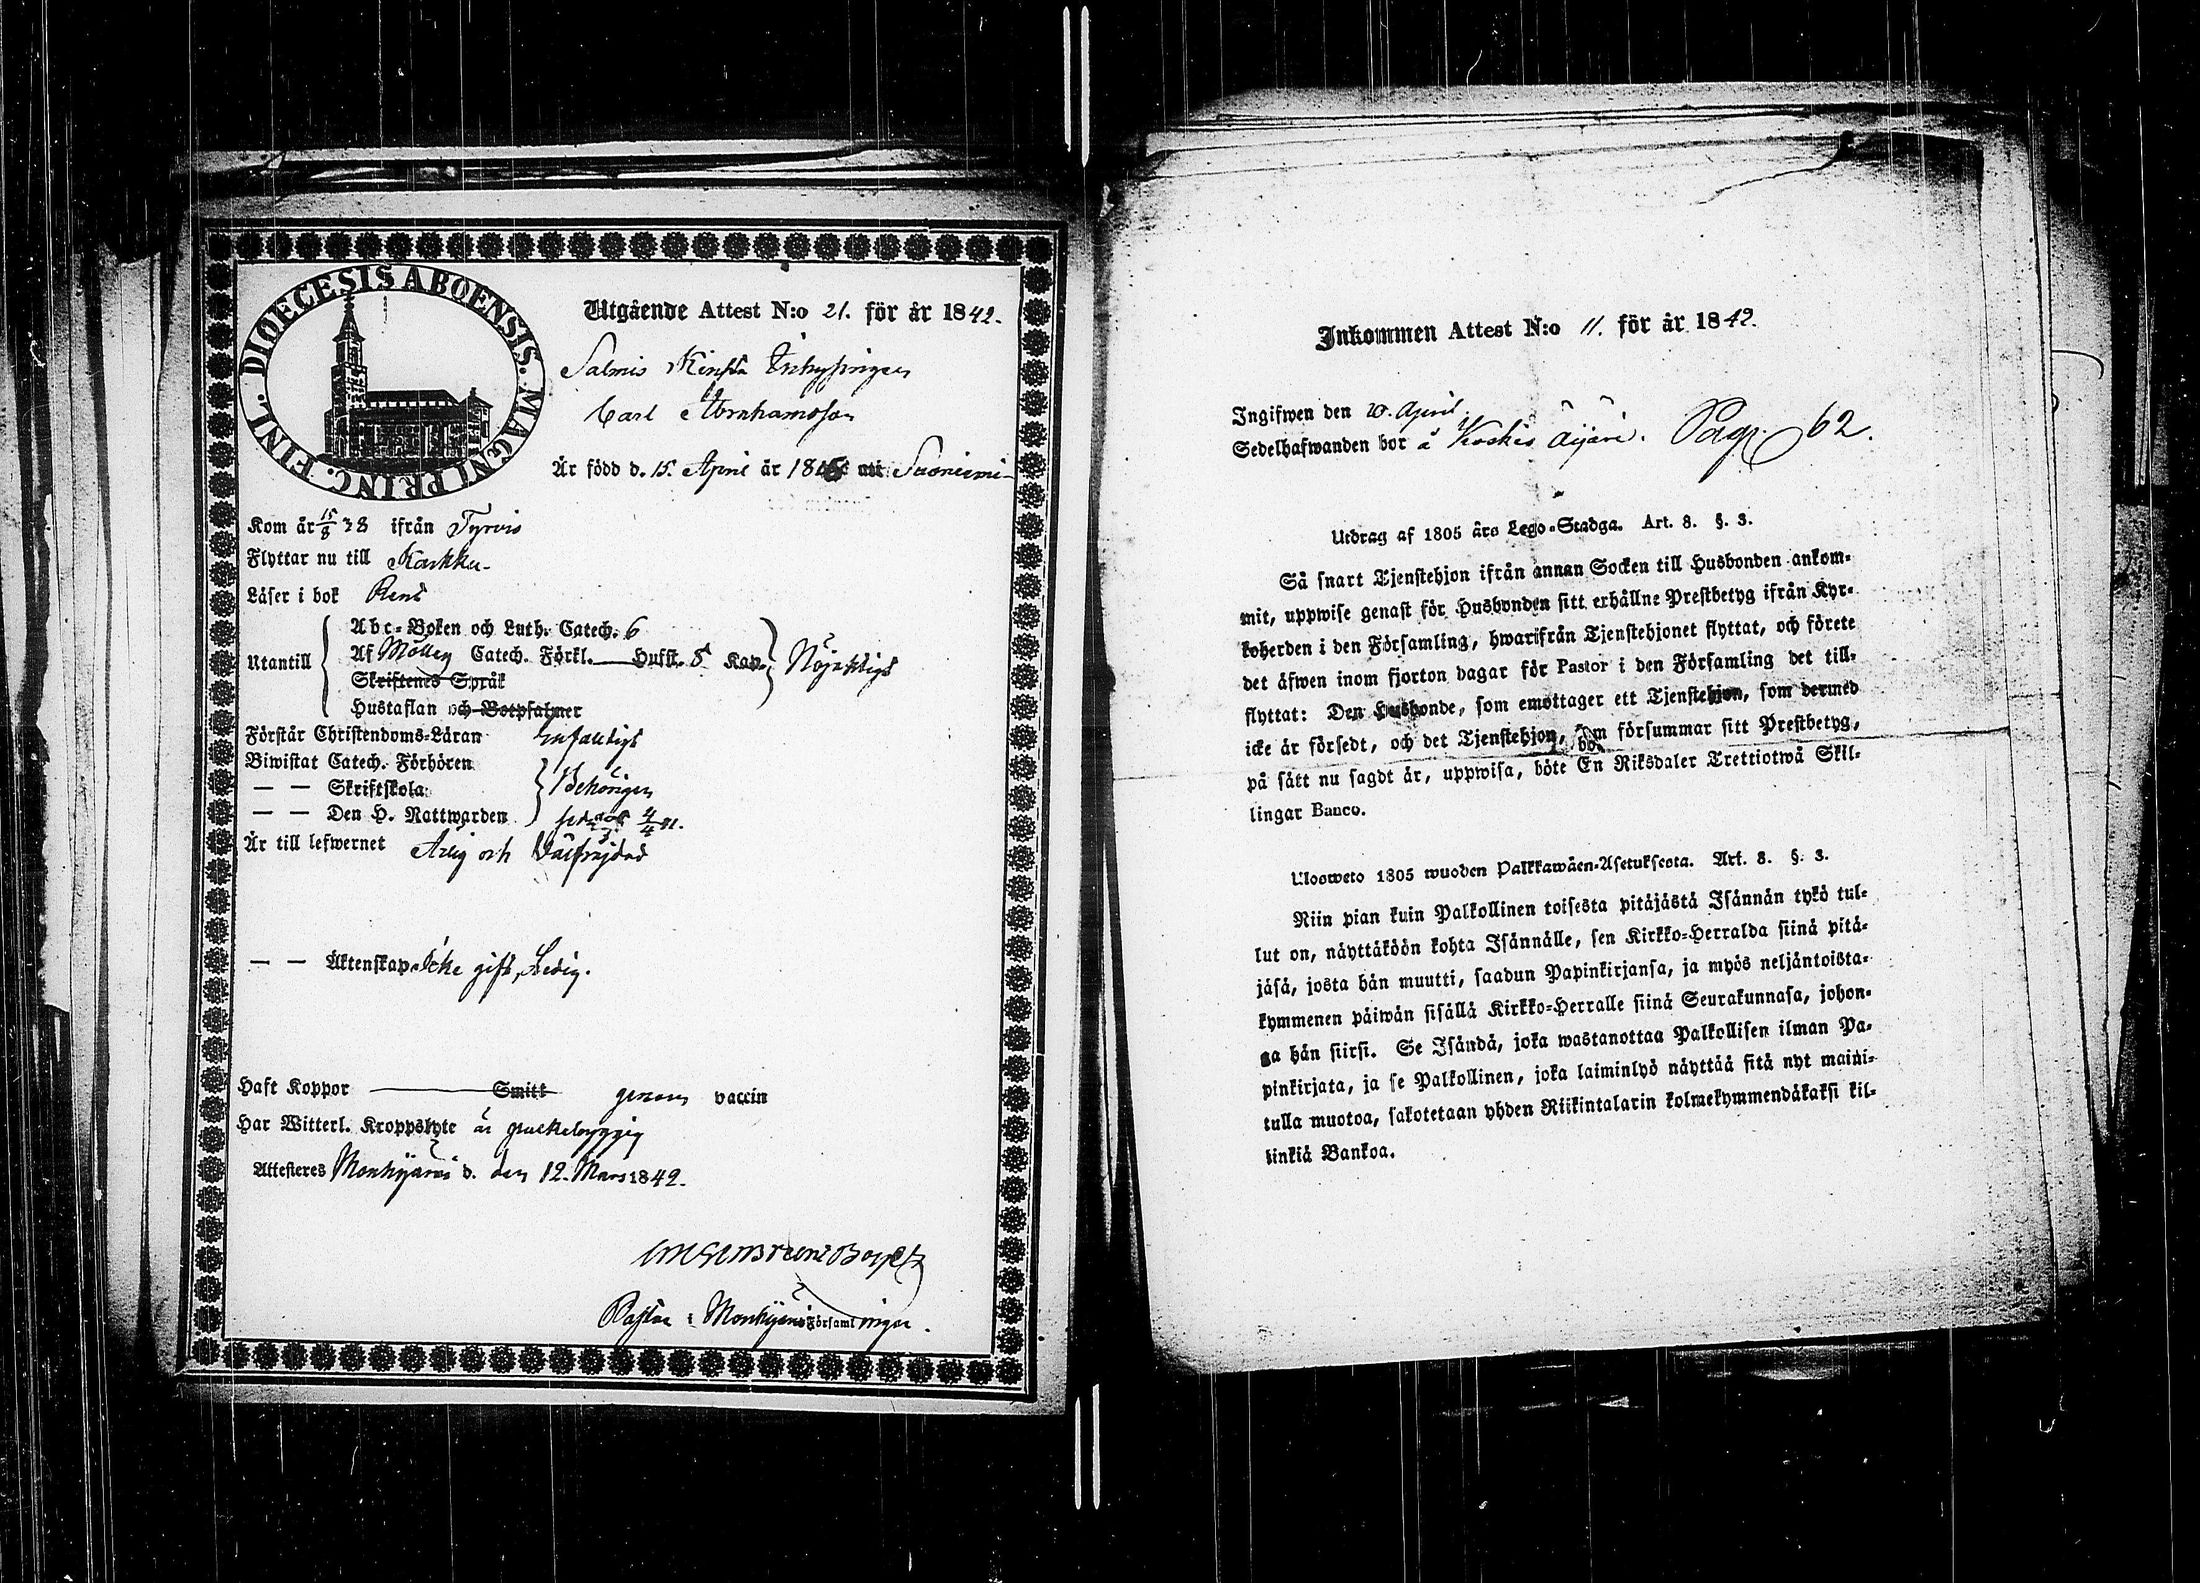 DIOECESIS ABOENSIS. MAGNI PRINC. FINL.
Utgående Attest N:o 21. för år 1842.
Salmis
Carl Abrahamsson
Är född d. 15. April år 18 Suoniemi
Kom år 15/8 38 ifrån Tyrvis
Flyttar nu till Karkku
Läser i bok Rent
Abc-Boken och Luth. Catech. 6
Utantill Af Catech. Förkl. Husst. 5 Kap. Nöjaktigt
Skriftenes Språk
Hustaflan och Botpsalmer
Förstår Christendoms-Läran Enfaldigt
Biwistat Catech. Förhören
— — Skriftskola Behörigen
— — Den H. Nattwarden sednast 4/4 41.
Är till lefwernet Ärlig och Välfrejdad
— — Äktenskap Icke gift, Ledig.
Haft Koppor Smitt genom vaccin
Har Witterl. Kroppslyte är puckelryggig
Attesteres Mouhijärvi d. den 12. Mars 1842.
Pastor i Mouhijärvi Församlingar.
Inkommen Attest N:o 11. för år 1842.
Ingifwen den 20. April
Sedelhafwanden bor å Koskis Äijäri. Pag. 62.
Utdrag af 1805 års Lego-Stadga. Art. 8. §. 3.
Så snart Tjenstehjon ifrån annan Socken till Husbonden ankom-
mit, uppwise genast för Husbonden sitt erhållne Prestbetyg ifrån Kyr-
koherden i den Församling, hwarifrån Tjenstehjonet flyttat, och förete
det äfwen inom fjorton dagar för Pastor i den Församling det till-
flyttat: Den Husbonde, som emottager ett Tjenstehjon, som dermed
icke är försedt, och det Tjenstehjon, som försummar sitt Prestbetyg,
på sätt nu sagdt är, uppwisa, böte En Riksdaler Trettiotwå Skil-
lingar Banco.
Ulosweto 1805 wuoden Palkkawäen-Asetuksesta. Art. 8. §. 3.
Niin pian kuin Palkollinen toisesta pitäjästä Isännän tykö tul-
lut on, näyttäköön kohta Isännälle, sen Kirkko-Herralda siinä pitä-
jäsä, josta hän muutti, saadun Papinkirjansa, ja myös neljäntoista-
kymmenen päiwän sisällä Kirkko-Herralle siinä Seurakunnasa, johon-
ga hän siirsi. Se Isändä, joka wastanottaa Palkollisen ilman Pa-
pinkirjata, ja se Palkollinen, joka laiminlyö näyttää sitä nyt maini-
tulla muotoa, sakotetaan yhden Riikintalarin kolmekymmendäkaksi kil-
linkiä Bankoa.